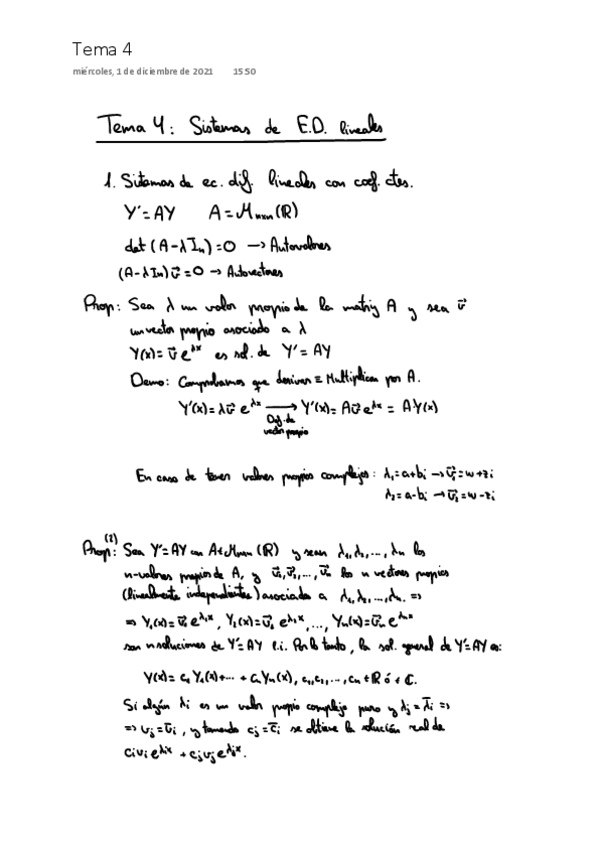 Tema 4
miércoles, 1 de diciembre de 2021 15:50
Tema 4: Sistemas de E.D. lineales
1. Sitemas de ec. dif. lineales con coef. ctes.
Y' = AY A = M_{nxn}(ℝ)
det (A - λ I_n) = 0 → Autovalores
(A - λ I_n) v⃗ = 0 → Autovectores
Prop: Sea λ un valor propio de la matriz A y sea v⃗
un vector propio asociado a λ
Y(x) = v⃗ e^{λx} es sol. de Y' = AY
Demo: Comprobamos que derivar ≡ Multiplicar por A.
Y'(x) = λv⃗ e^{λx} → Y'(x) = Av⃗ e^{λx} = A·Y(x)
Def. de
vector propio
En caso de tener valores propios complejos: λ₁ = a+bi → v⃗₁ = w+zi
λ₂ = a-bi → v⃗₂ = w-zi
Prop:⁽²⁾ Sea Y' = AY con A ∈ M_{nxn}(ℝ) y sean λ₁, λ₂, ..., λn los
n-valores propios de A, y v⃗₁, v⃗₂, ..., v⃗n los n vectores propios
(linealmente independientes) asociados a λ₁, λ₂, ..., λn. ⇒
⇒ Y₁(x) = v⃗₁ e^{λ₁x}, Y₂(x) = v⃗₂ e^{λ₂x}, ..., Yn(x) = v⃗n e^{λnx}
son n soluciones de Y' = AY l.i. Por lo tanto, la sol. general de Y' = AY es:
Y(x) = c₁ Y₁(x) + ... + cn Yn(x), c₁, c₂, ..., cn ∈ ℝ ó ∈ ℂ.
Si algún λi es un valor propio complejo puro y λj = λ̄i ⇒
⇒ vj = v̄i, y tomando cj = c̄i se obtiene la solución real de
ci vi e^{λix} + cj vj e^{λjx}.